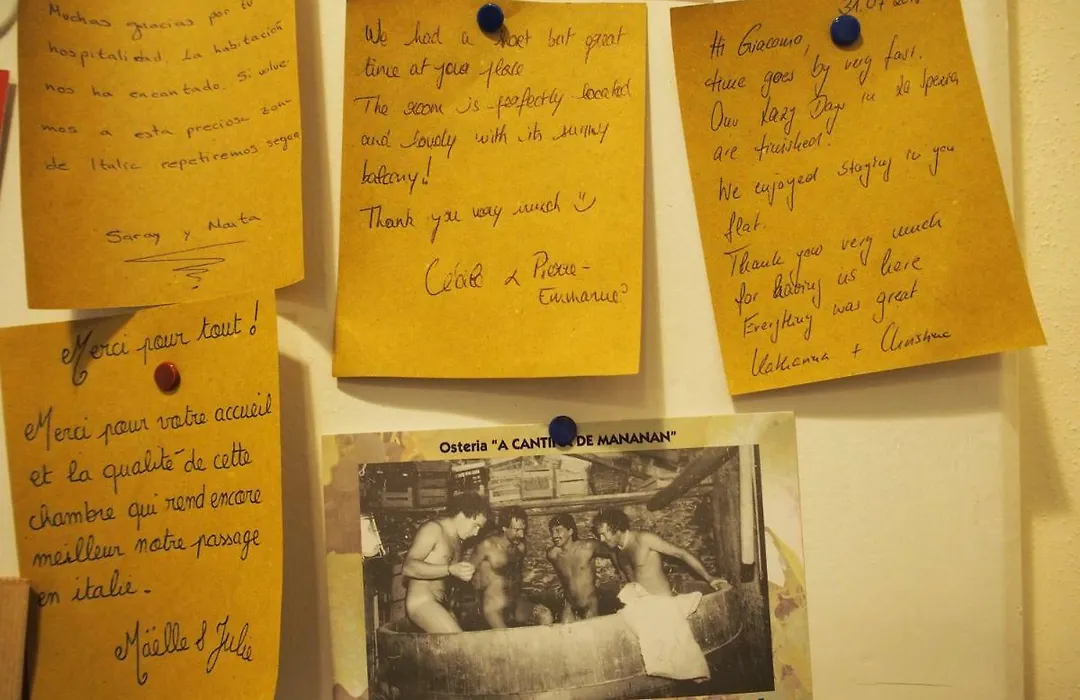 Muchas gracias por tu
hospitalidad. La habitación
nos ha encantado. Si volve-
mos a esta preciosa zon-
de Italia repetiremos segur
Saray y Marta
We had a short but great
time at your place
The room is perfectly located
and lovely with its sunny
balcony!
Thank you very much
Cécile & Pierre-
Emmanuel
31.07
Hi Giacomo,
time goes by very fast.
Our Lazy Days in La Spezia
are finished!
We enjoyed staying in you
flat.
Thank you very much
for having us here
Everything was great
Katharina + Christine
Merci pour tout !
Merci pour votre accueil
et la qualité de cette
chambre qui rend encore
meilleur notre passage
en italie.
Maëlle & Julie
Osteria "A CANTINA DE MANANAN"